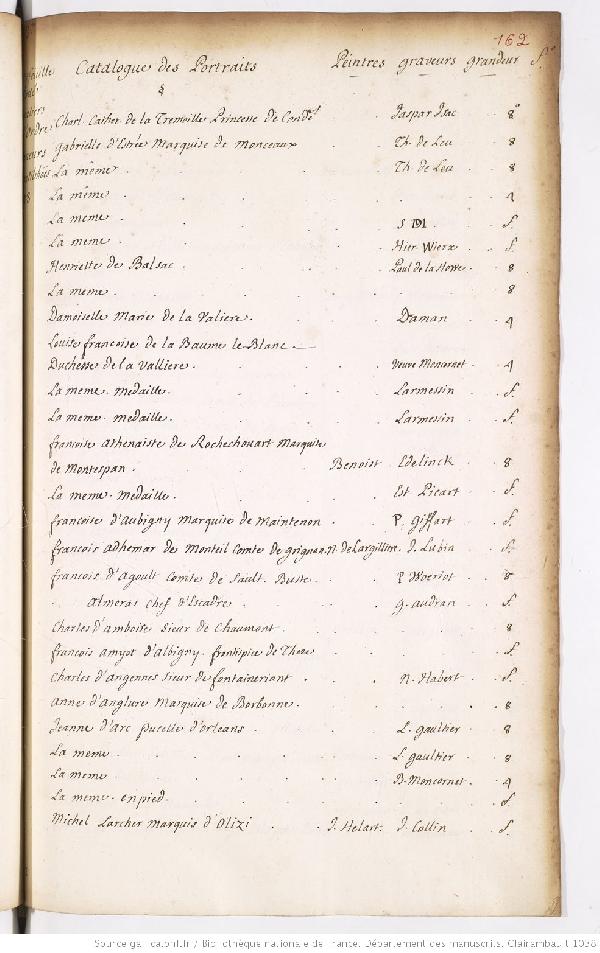 162
Catalogue des Portraits Peintres graveurs grandeur f.
§
Charl. Cather de la Tremoille Princesse de Condé Jaspar Isac 8°
gabrielle d'Estrée Marquise de Monceaux Th. de Leu 8
La même Th. de Leu 8
La même 4
La même f.
La même Hier Wierx f.
Henriette de Balsac Paul de la Howe 8
La même 8
Damoiselle Marie de la Valiere Daman 4
Louise francoise de la Baume le Blanc
Duchesse de la Valliere Veuve Moncornet 4
La meme medaille Larmessin f.
La meme medaille Larmessin f.
francoise athenaiste de Rochechouart Marquise
de Montespan Benoist Edelinck 8
La meme medaille Est Picart f.
francoise d'aubigny Marquise de Maintenon P. Giffart f.
francois adhemar de Monteil Comte de grignan N. de Largilliere J. Lubin f.
francois d'Agoult Comte de Sault. Buste P Woeriot 8
Almeras Chef d'Escadre g. audran f.
Charles d'amboise sieur de Chaumont 8
francois amyot d'albigny frontispice de These f.
Charles d'angennes sieur de fontaineriant N. Habert f.
Anne d'anglure Marquise de Borbonne 8
Jeanne d'Arc pucelle d'orleans L. gaultier 8
La meme L. gaultier 8
La meme B. Moncornet 4
La meme en pied f.
Michel Larcher Marquis d'Olizi J. Helart J. Collin f.
Source gallica.bnf.fr / Bibliothèque nationale de France. Département des manuscrits. Clairambault 1038